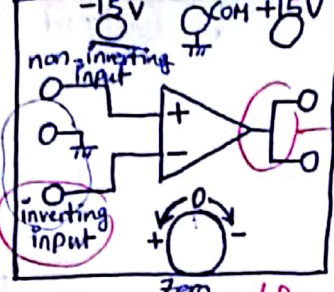 -15V
COM +15V
non-inverting
input
+
-
inverting
input
0
+ -
Zero